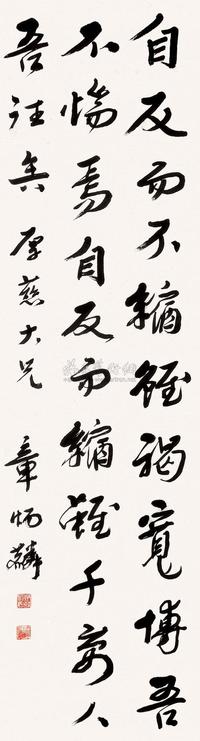 自反而不縮雖褐寬博吾
不惴焉自反而縮雖千萬人
吾往矣 厚慈大兄 章炳麟